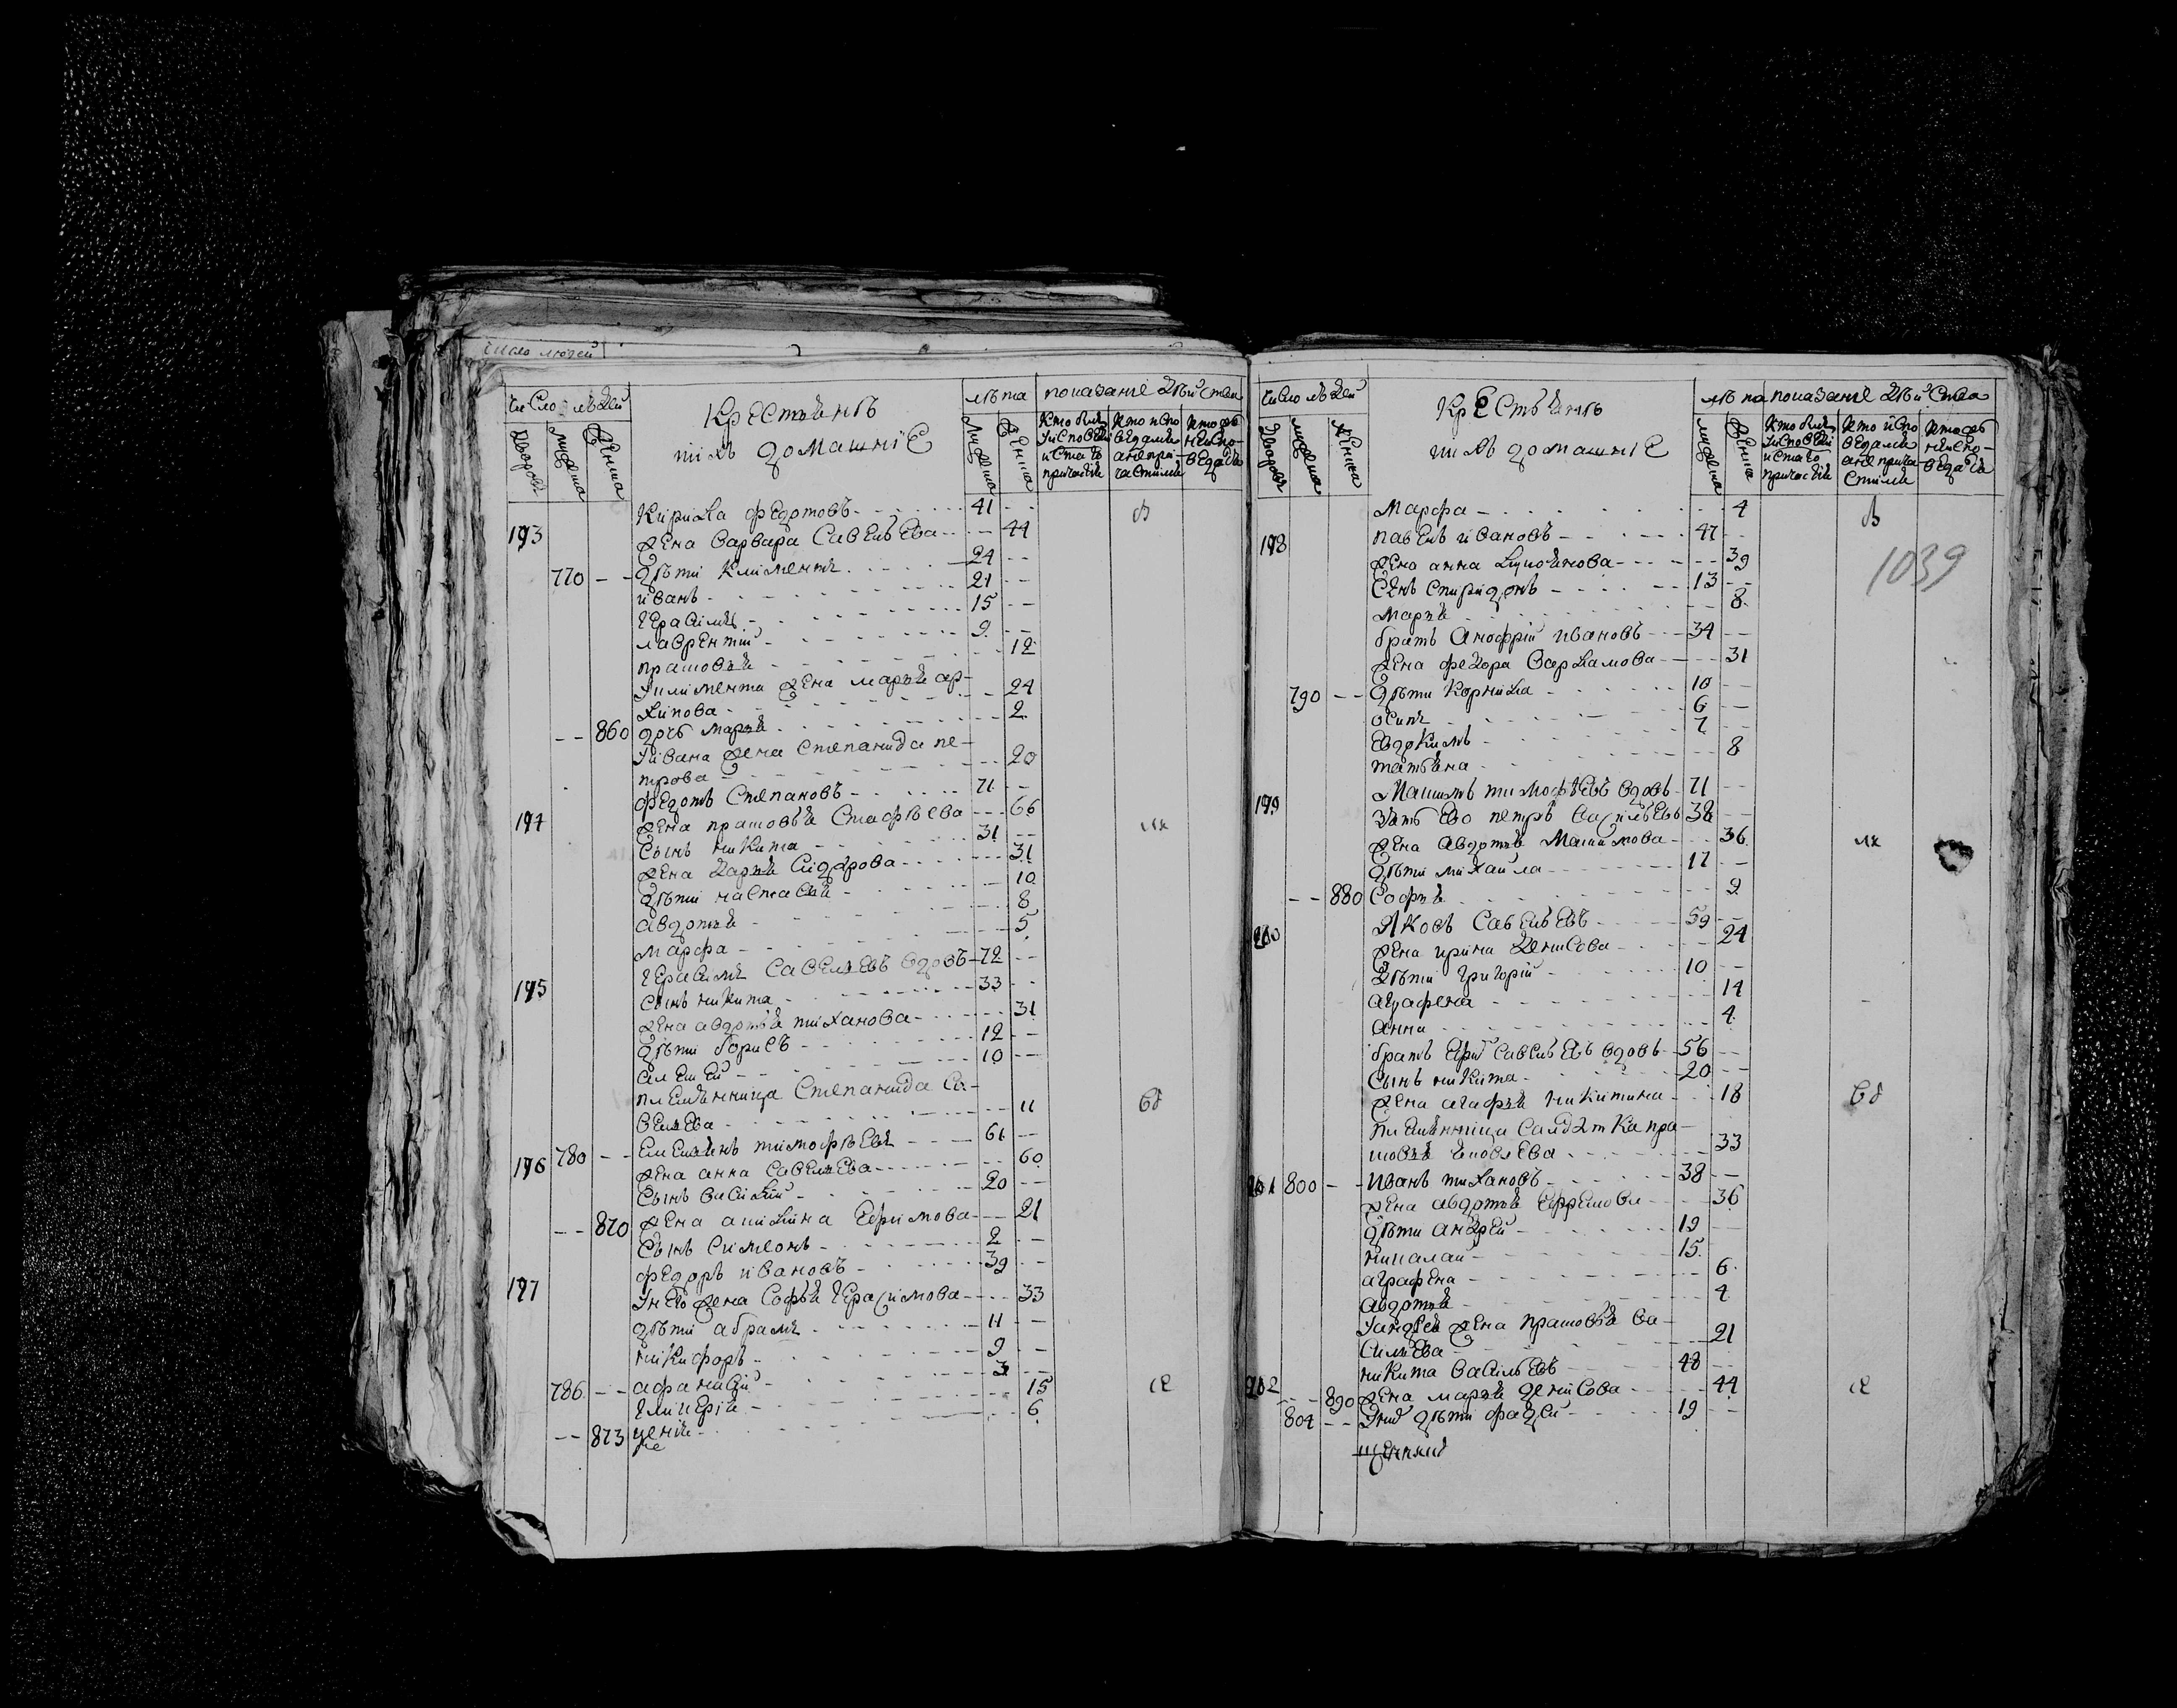 число людей
число людей
Крестьянъ
лѣта
показаніе дѣйства
Дворовъ
мужеска
женска
ихъ домашніе
мужеска
женска
кто былъ у исповѣди и святаго причастія
кто исповѣдался а не причастился
кто жъ не исповѣдался
Кирила Федотовъ 41
193
жена Варвара Савельева 44
770 дѣти Климентъ 24
иванъ 21
Герасимъ 15
лаврентий 9
прасковья 12
у климента жена марья ар-
хипова 24
860 дочь марья 2
у ивана жена Степанида пе-
трова 20
федотъ Степановъ 71
194
жена прасковья Стафѣева 66
сынъ никита 31
жена дарья Сидорова 31
дѣти настасья 10
авдотья 8
марфа 5
195
Герасимъ Савельевъ вдовъ 72
сынъ никита 33
жена авдотья тиханова 31
дѣти борисъ 12
алексей 10
племянница Степанида Са-
вельева 11
196 780
Емельянъ тимофѣевъ 61
жена анна Савельева 60
сынъ василий 20
870 жена акилина Ефимова 21
сынъ симеонъ 2
федоръ ивановъ 39
197
у него жена Софья Герасимова 33
дѣти абрамъ 11
никифоръ 9
786 афанасий 3
Гликерія 15
873 ксенія 6
число людей
Крестьянъ
лѣта
показаніе дѣйства
Дворовъ
мужеска
женска
ихъ домашніе
мужеска
женска
кто былъ у исповѣди и святаго причастія
кто исповѣдался а не причастился
кто жъ не исповѣдался
1039
Марфа 4
198
павелъ ивановъ 47
жена анна 39
сынъ спиридонъ 13
марья 8
братъ Анофрій ивановъ 34
жена федора Варламова 31
790 дѣти корнила 10
осипъ 6
Евдокимъ 7
татьяна 8
199
Максимъ тимофѣевъ вдовъ 71
зять Ево петръ васильевъ 38
жена авдотья Максимова 36
дѣти михайла 17
880 Софья 9
200
Яковъ Савельевъ 59
жена ирина денисова 24
дѣти григорій 10
аграфена 14
анна 4
братъ Савельевъ вдовъ 56
сынъ никита 20
жена агафья никитина 18
племянница салдатка пра-
сковья 33
201 800 Иванъ тихановъ 38
жена авдотья Ефремова 36
дѣти андрей 19
николай 15
аграфена 6
авдотья 4
у андрея жена прасковья ва-
сильева 21
202
никита васильевъ 48
890 жена марья денисова 44
804 дѣти фадей 19